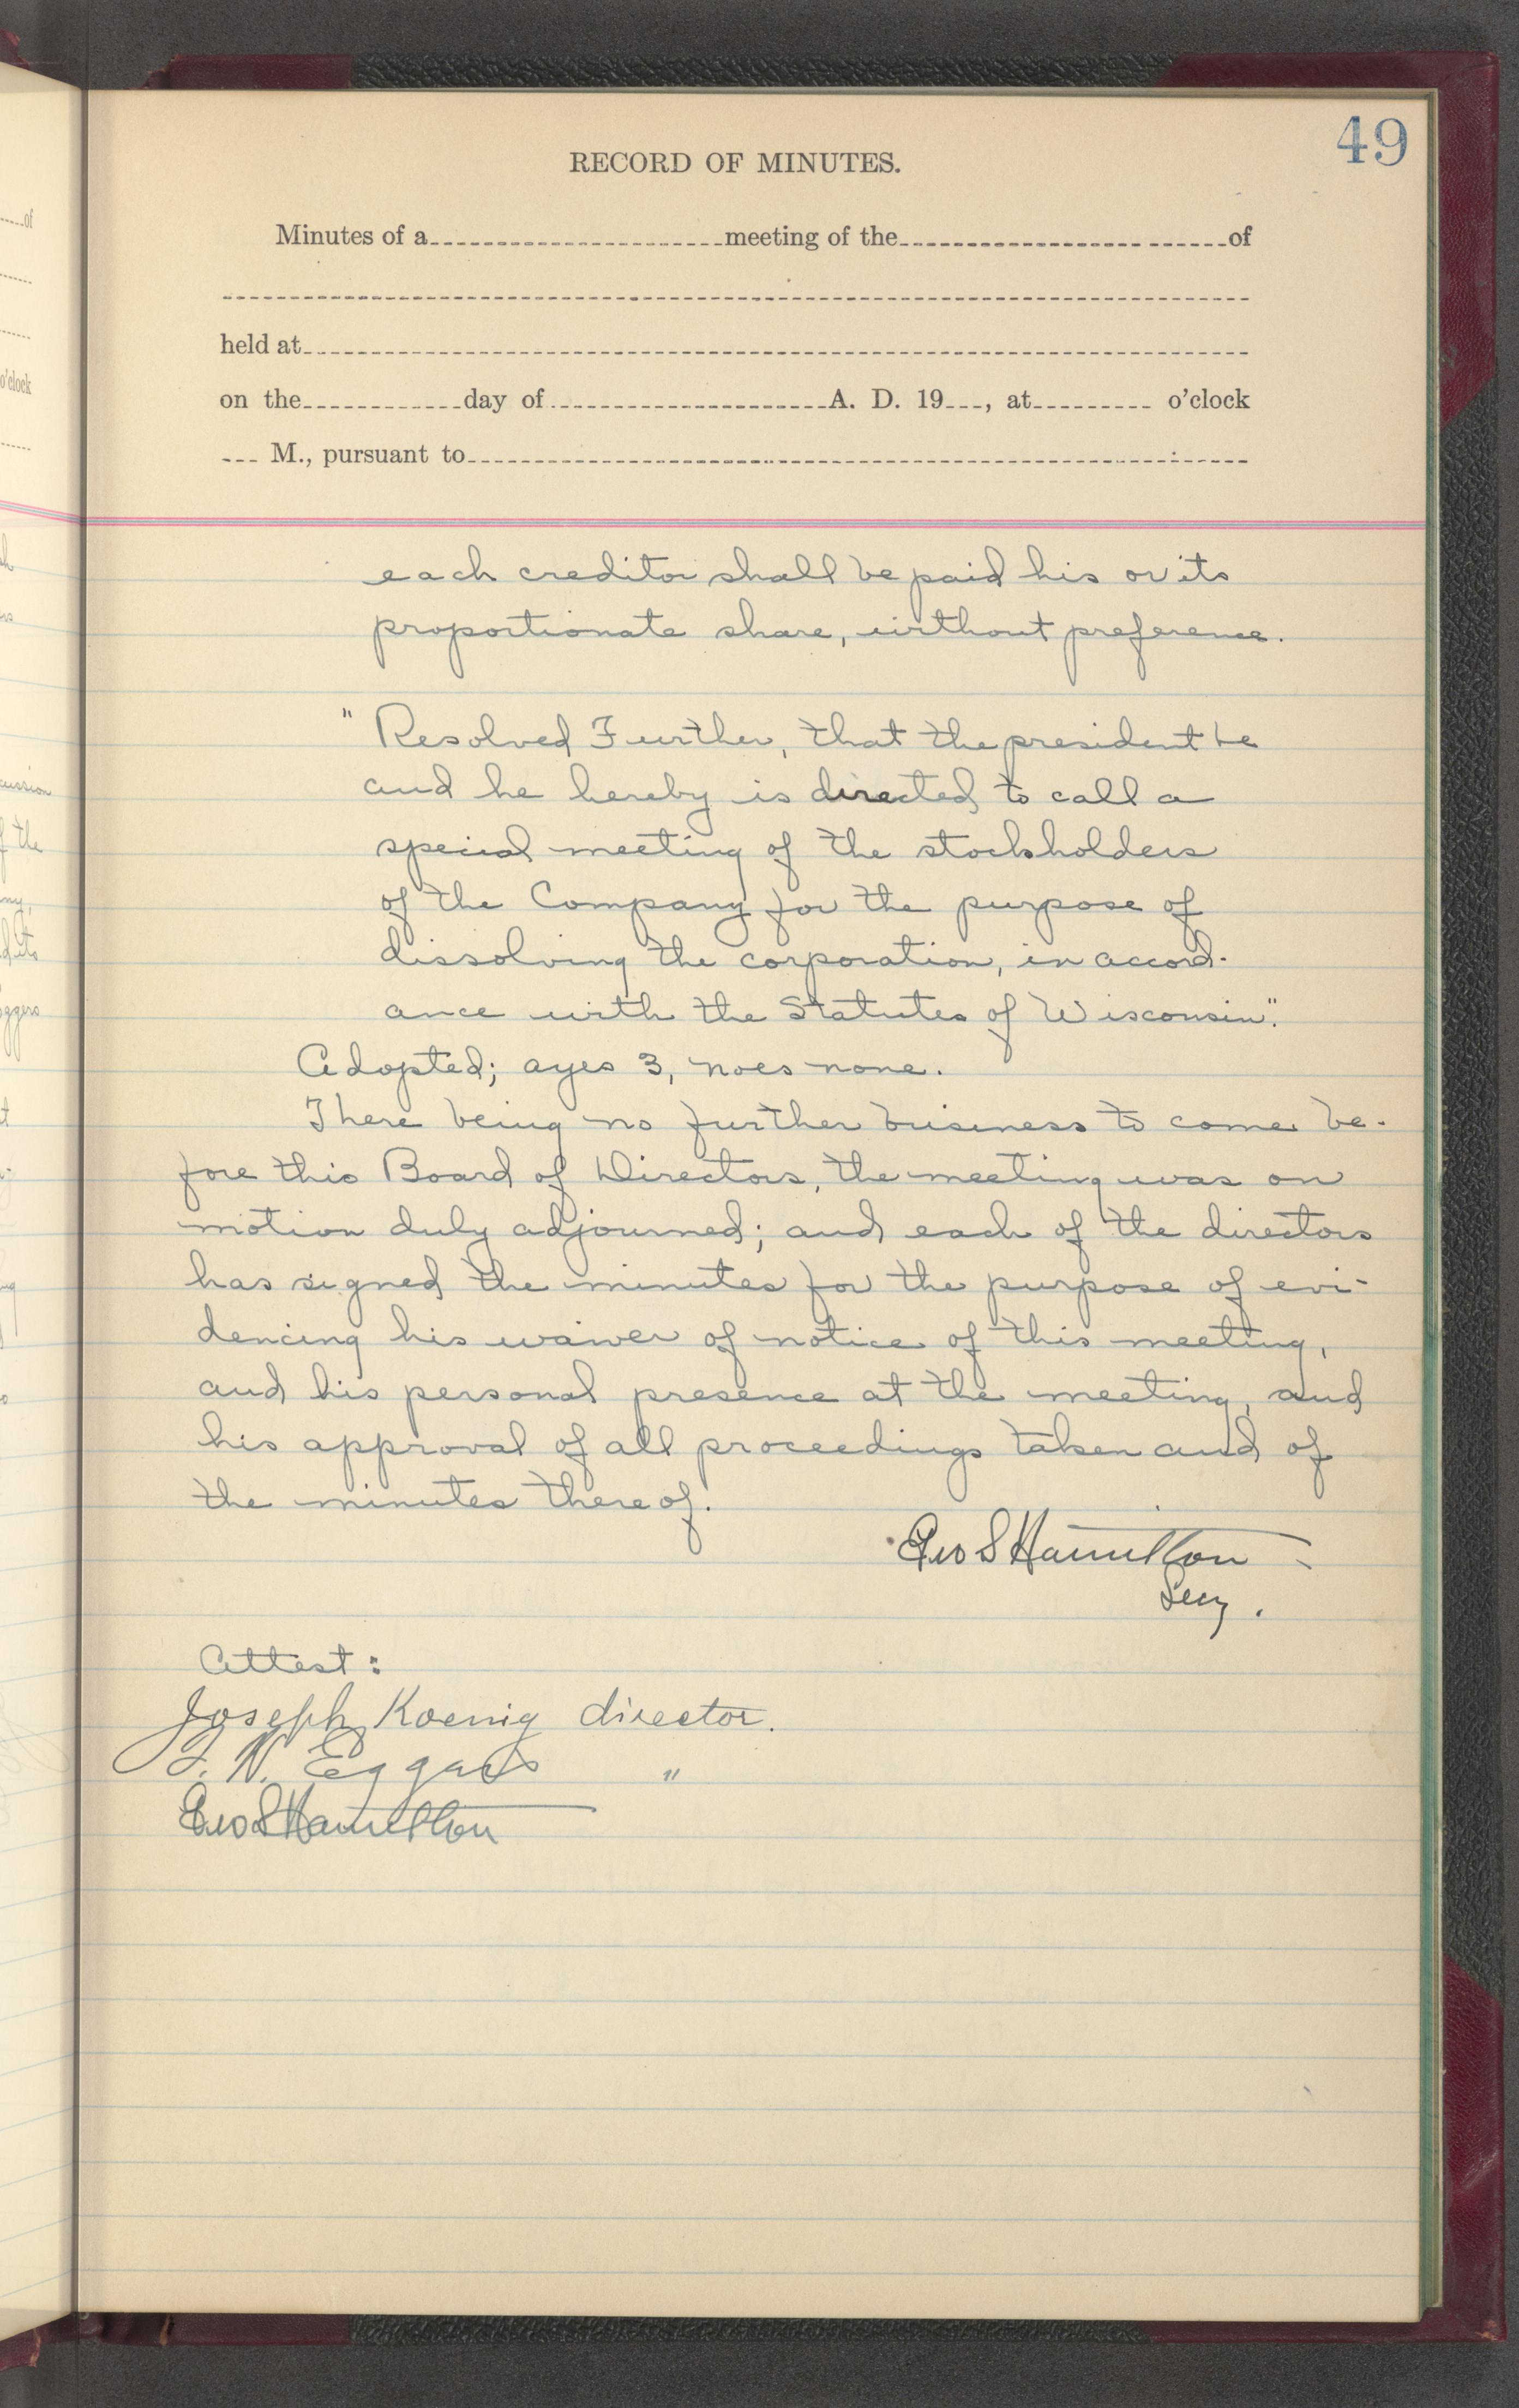 49
RECORD OF MINUTES.
Minutes of a meeting of the of
held at
on the day of A. D. 19 , at o'clock
M., pursuant to
each creditor shall be paid his or its
proportionate share, without preference.
" Resolved Further, that the president be
and he hereby is directed to call a
special meeting of the stockholders
of the Company for the purpose of
dissolving the corporation, in accord-
ance with the Statutes of Wisconsin."
Adopted; ayes 3, noes none.
There being no further business to come be-
fore this Board of Directors, the meeting was on
motion duly adjourned; and each of the directors
has signed the minutes for the purpose of evi-
dencing his waiver of notice of this meeting,
and his personal presence at the meeting, and
his approval of all proceedings taken and of
the minutes thereof.
Geo S Hamilton
Secy.
Attest:
Joseph Koenig director.
F. N. Eggers "
Geo S Hamilton